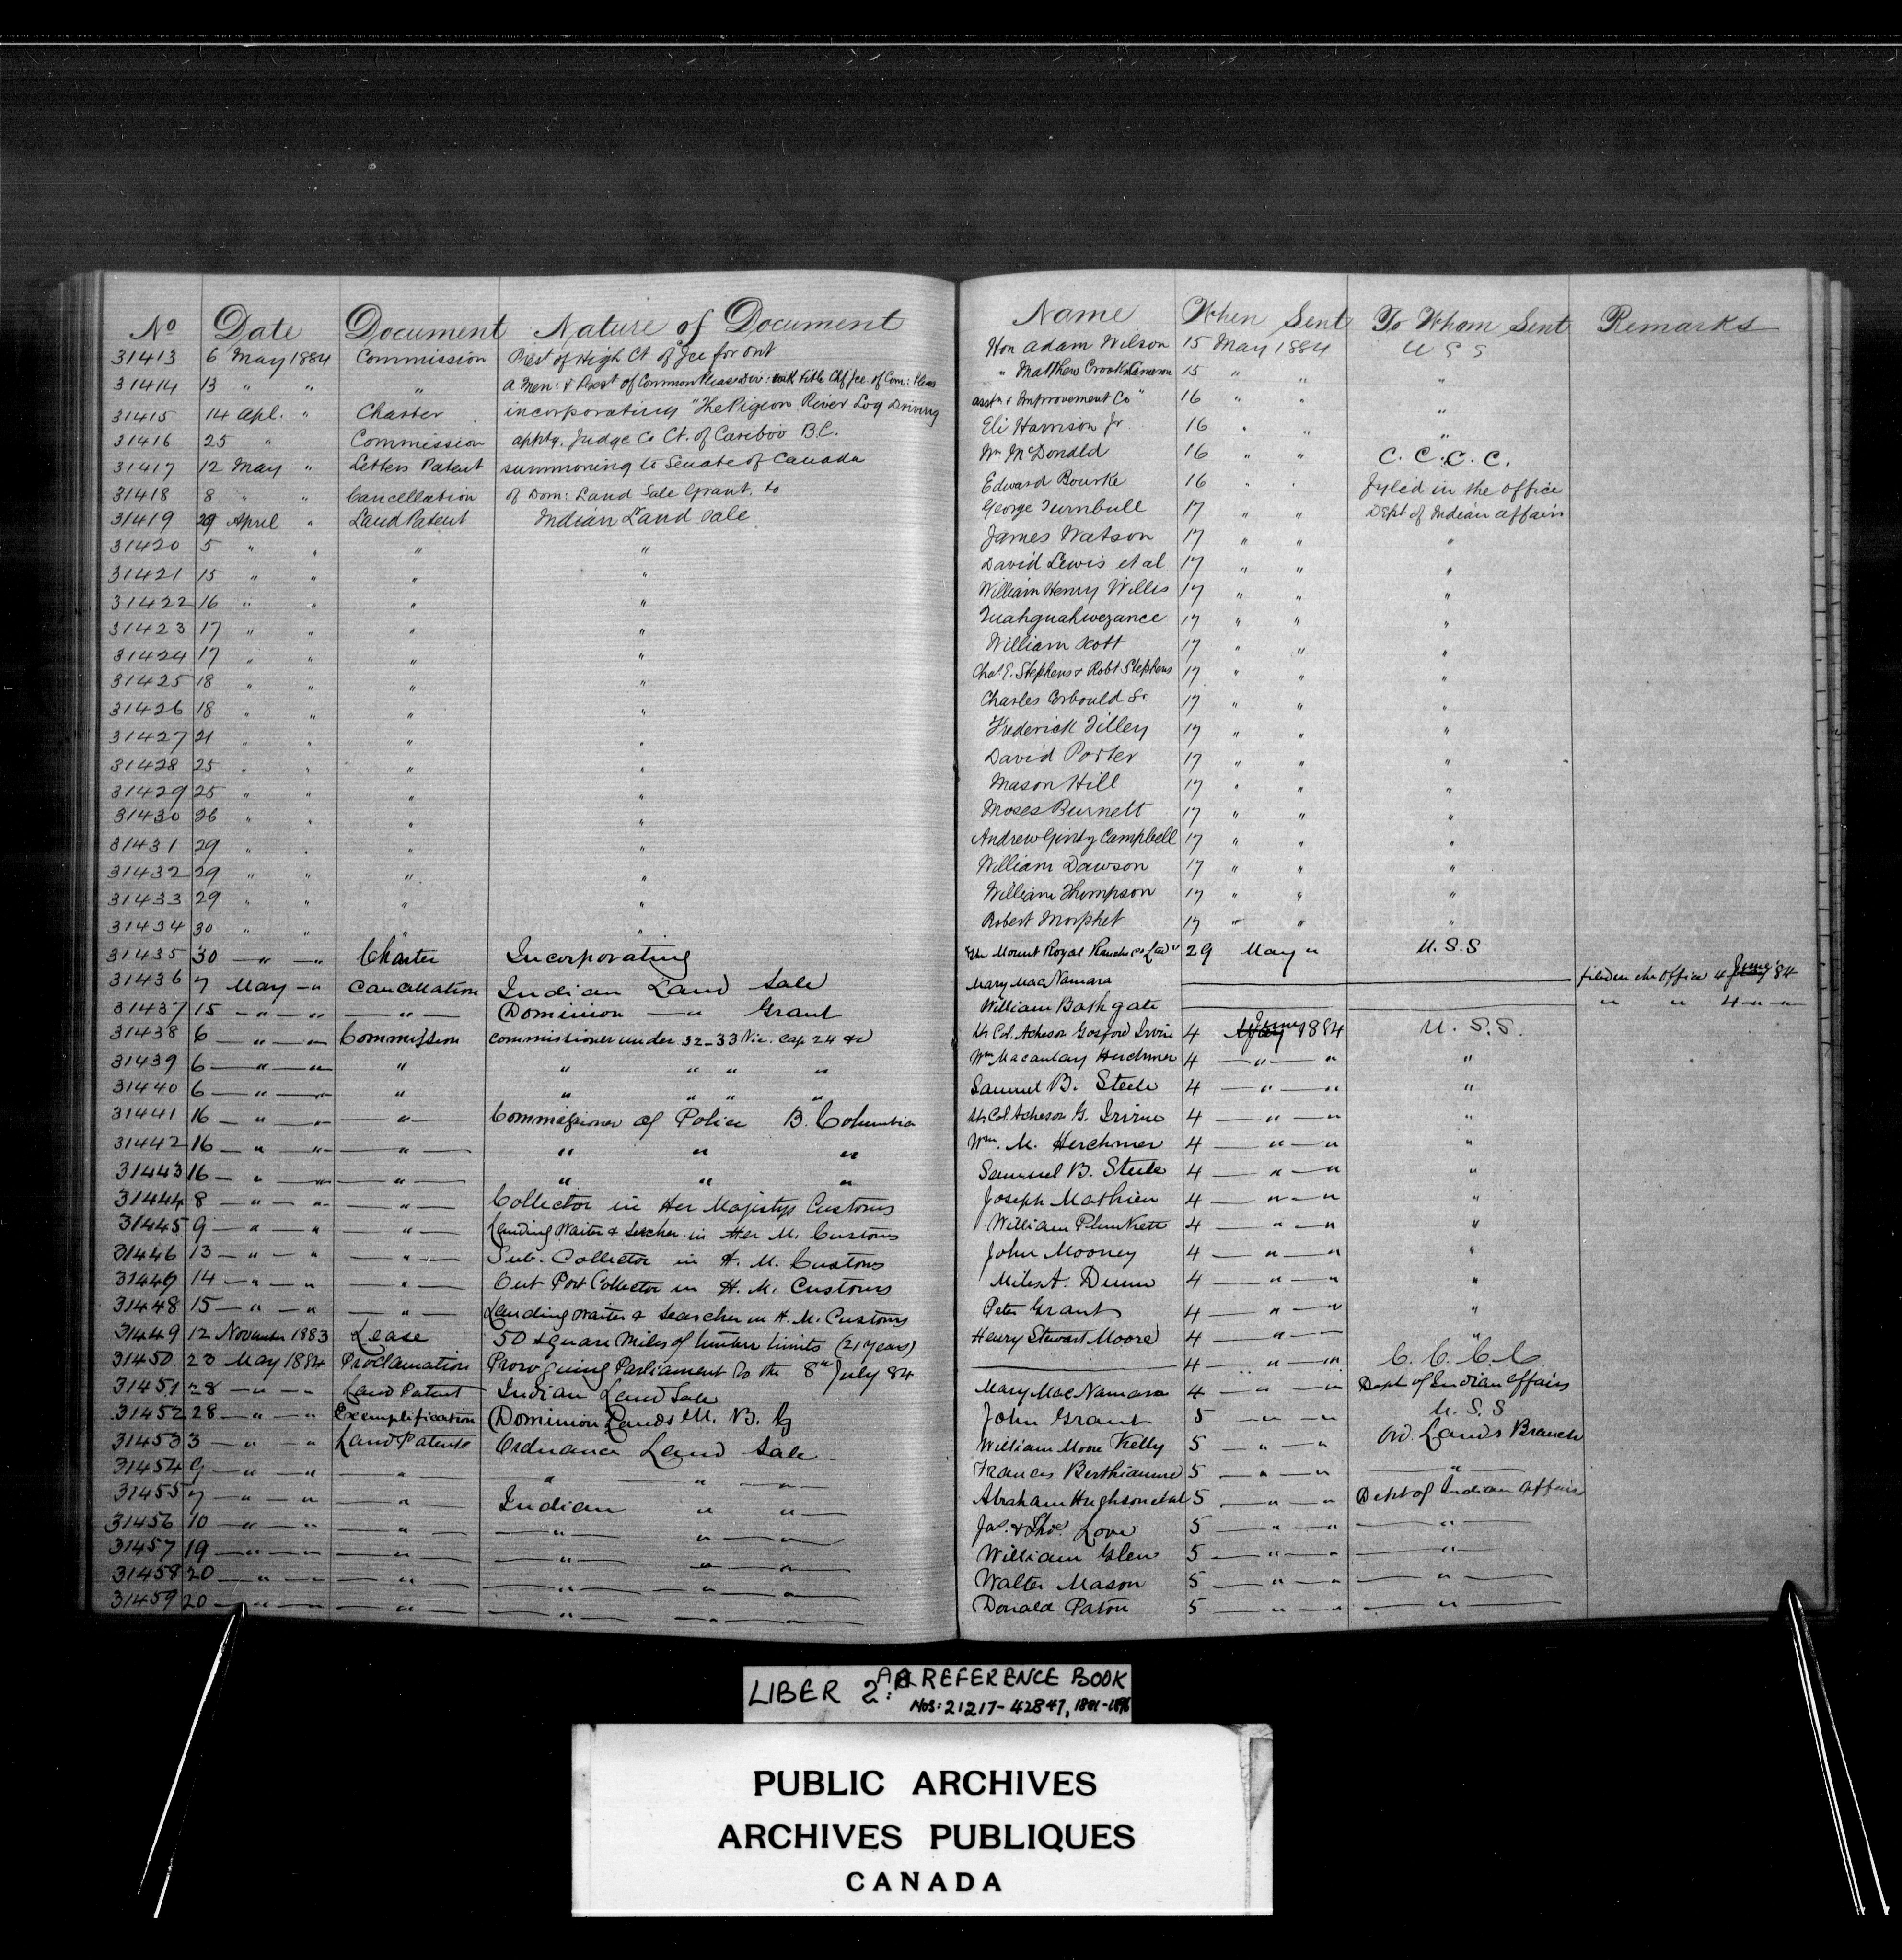 No Date Document Nature of Document Name When Sent To Whom Sent Remarks
31413 6 May 1884 Commission Prest of High Ct of Jce for Ont Hon Adam Wilson 15 May 1884 U S S
31414 13 " " " a Mem: & Prest of Common Pleas Div: with title Chf Jce. of Com: Pleas " Matthew Crooks Cameron 15 " " "
31415 14 Apl. " Charter incorporating "The Pigeon River Log Driving asstn & Improvement Co" 16 " " "
31416 25 " Commission apptg. Judge Co Ct. of Cariboo B.C. Eli Harrison Jr 16 " " "
31417 12 May " Letters Patent summoning to Senate of Canada Wm McDonald 16 " " C. C. C. C.
31418 8 " " Cancellation of Dom: Land Sale Grant, to Edward Bourke 16 " " fyled in the office
31419 29 April " Land Patent Indian Land Sale George Turnbull 17 " " Dept of Indian affairs
31420 5 " " " " James Watson 17 " " "
31421 15 " " " " David Lewis et al 17 " " "
31422 16 " " " " William Henry Willis 17 " " "
31423 17 " " " " 17 " " "
31424 17 " " " " William Kott 17 " " "
31425 18 " " " " Chas. E. Stephens & Robt Stephens 17 " " "
31426 18 " " " " Charles Corbould Sr 17 " " "
31427 21 " " " " Frederick Tilley 17 " " "
31428 25 " " " " David Porter 17 " " "
31429 25 " " " " Mason Hill 17 " " "
31430 26 " " " " Moses Burnett 17 " " "
31431 29 " " " " Andrew Ginty Campbell 17 " " "
31432 29 " " " " William Dawson 17 " " "
31433 29 " " " " William Thompson 17 " " "
31434 30 " " " " Robert Morphet 17 " " "
31435 30 " " Charter Incorporating "The Mount Royal Ranche Co Ltd" 29 May " U.S.S
31436 7 May " Cancellation Indian Land Sale Mary MacNamara filed in the Office 4 June '84
31437 15 " " " Dominion " Grant William Bathgate " " 4 " "
31438 6 " " Commission Commissioner under 32-33 Vic. Cap 24 &c Lt Col. Acheson Gosford Irvine 4 June 1884 U. S. S.
31439 6 " " " " " " " Wm Macaulay Herchmer 4 " " "
31440 6 " " " " " " " Samuel B. Steele 4 " " "
31441 16 " " " Commissioner of Police B. Columbia Lt Col. Acheson G. Irvine 4 " " "
31442 16 " " " " " " Wm. M. Herchmer 4 " " "
31443 16 " " " " " " Samuel B. Steele 4 " " "
31444 8 " " " Collector in Her Majestys Customs Joseph Mathieu 4 " " "
31445 9 " " " Landing Waiter & Searcher in Her M. Customs William Plunkett 4 " " "
31446 13 " " " Sub. Collector in H. M. Customs John Mooney 4 " " "
31447 14 " " " Out Port Collector in H. M. Customs Miles A. Dunn 4 " " "
31448 15 " " " Landing Waiter & Searcher in H. M. Customs Peter Grant 4 " " "
31449 12 November 1883 Lease 50 square Miles of timber limits (21 years) Henry Stewart Moore 4 " " "
31450 23 May 1884 Proclamation Proroguing Parliament to the 8th July 84 4 " " C. C. C. C
31451 28 " " Land Patent Indian Land Sale Mary MacNamara 4 " " Dept of Indian Affairs
31452 28 " " Exemplification Dominion Lands M. B. Ly John Grant 5 " " U. S. S
31453 3 " " Land Patents Ordnance Land Sale William Moore Kelly 5 " " Ord. Lands Branch
31454 9 " " " " " " Francis Berthiaume 5 " " "
31455 7 " " " Indian " " Abraham Hughson et al 5 " " Dept of Indian Affairs
31456 10 " " " " " " Jas. & Thos. Love 5 " " "
31457 19 " " " " " " William Glen 5 " " "
31458 20 " " " " " " Walter Mason 5 " " "
31459 20 " " " " " " Donald Paton 5 " " "
LIBER 2: REFERENCE BOOK
Nos: 21217-42847, 1881-1896
PUBLIC ARCHIVES
ARCHIVES PUBLIQUES
CANADA